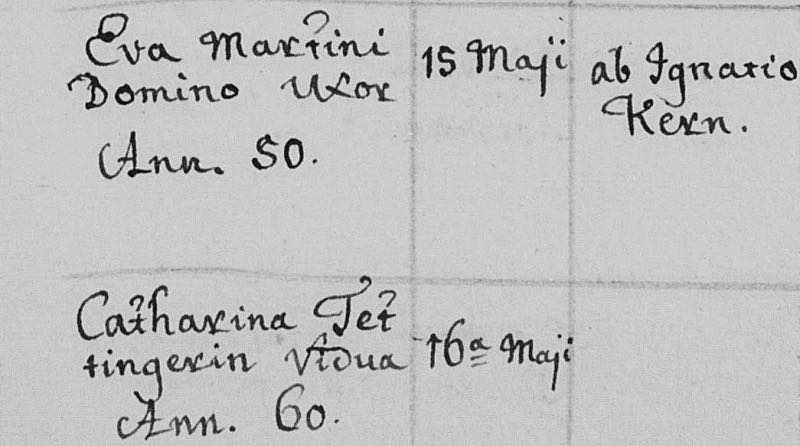 Eva Martini
Domino Uxor
Ann. 50.
15 Maji
ab Ignatio
Kern.
Catharina Tet
tingerin Vidua
Ann. 60.
16a Maji